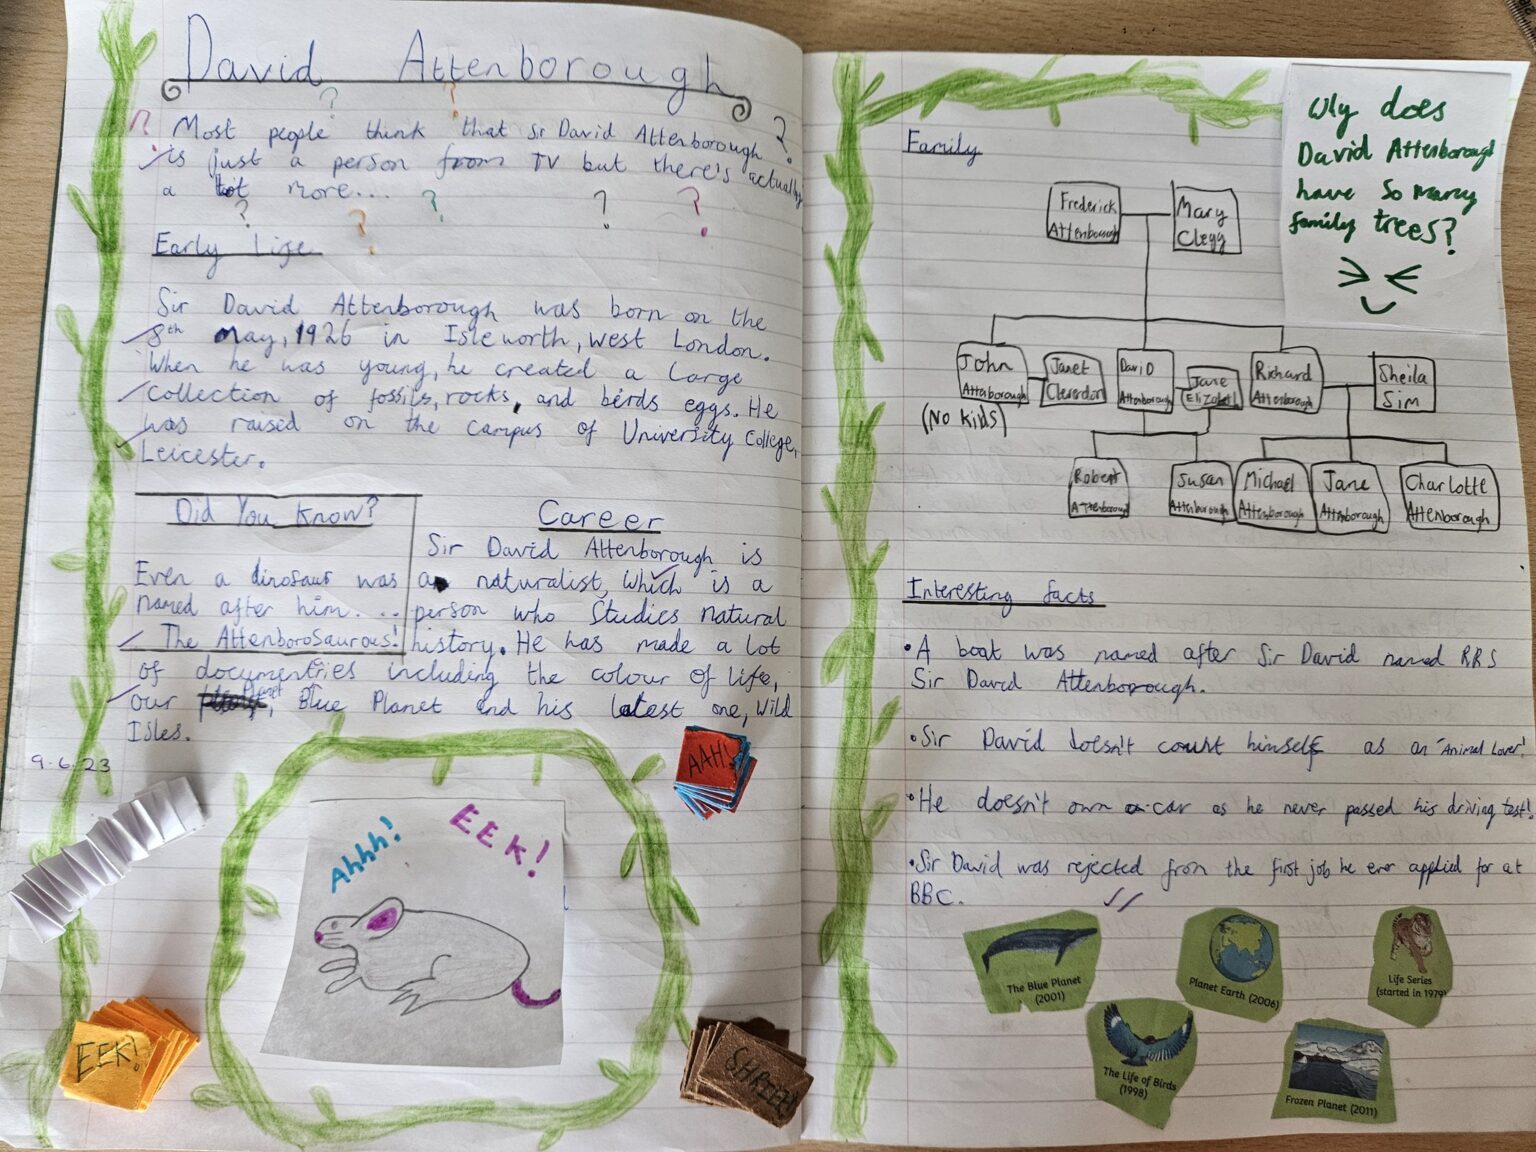 David Attenborough
? ?
? Most people think that Sir David Attenborough ?
is just a person from TV but there's actually
a lot more...
? ? ? ? ?
Early Life
Sir David Attenborough was born on the
8th May, 1926 in Isleworth, west London.
When he was young, he created a large
collection of fossils, rocks, and birds eggs. He
was raised on the campus of University College,
Leicester.
Did You Know?
Even a dinosaur was
named after him...
The Attenborosaurous!
Career
Sir David Attenborough is
a naturalist, which is a
person who Studies natural
history. He has made a lot
of documentries including the colour of life,
our Planet, Blue Planet and his latest one, Wild
Isles.
9.6.23
AAH!
Ahhh!
EEK!
EEK!
SHRIEK
Family
Frederick
Attenborough
Mary
Clegg
John
Attenborough
(No Kids)
Janet
David
Attenborough
Jane
Richard
Attenborough
Sheila
Sim
Robert
Attenborough
Susan
Attenborough
Michael
Attenborough
Jane
Attenborough
Charlotte
Attenborough
Why does
David Attenborough
have so many
family trees?
Interesting facts
•A boat was named after Sir David named RRS
Sir David Attenborough.
•Sir David doesn't count himself as an "Animal Lover!
•He doesn't own a car as he never passed his driving test!
•Sir David was rejected from the first job he ever applied for at
BBC.
The Blue Planet
(2001)
Planet Earth (2006)
Life Series
(started in 1979)
The Life of Birds
(1998)
Frozen Planet (2011)